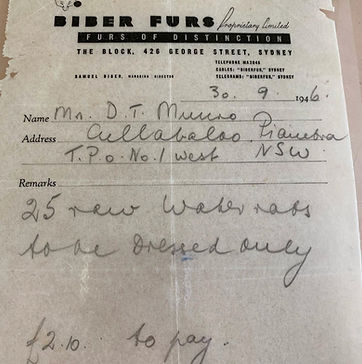 BIBER FURS Proprietary Limited
FURS OF DISTINCTION
THE BLOCK, 426 GEORGE STREET, SYDNEY
TELEPHONE MA2846
CABLES: "BIBERFUR," SYDNEY
TELEGRAMS: "BIBERFUR," SYDNEY
SAMUEL BIBER, MANAGING DIRECTOR
30. 9. 1946.
Name Mr. D. T. Munro
Address Cullabaloo
T.P.O. No. 1 West NSW
Remarks
25 raw Water rats
to be Dressed only
£2.10. to pay.